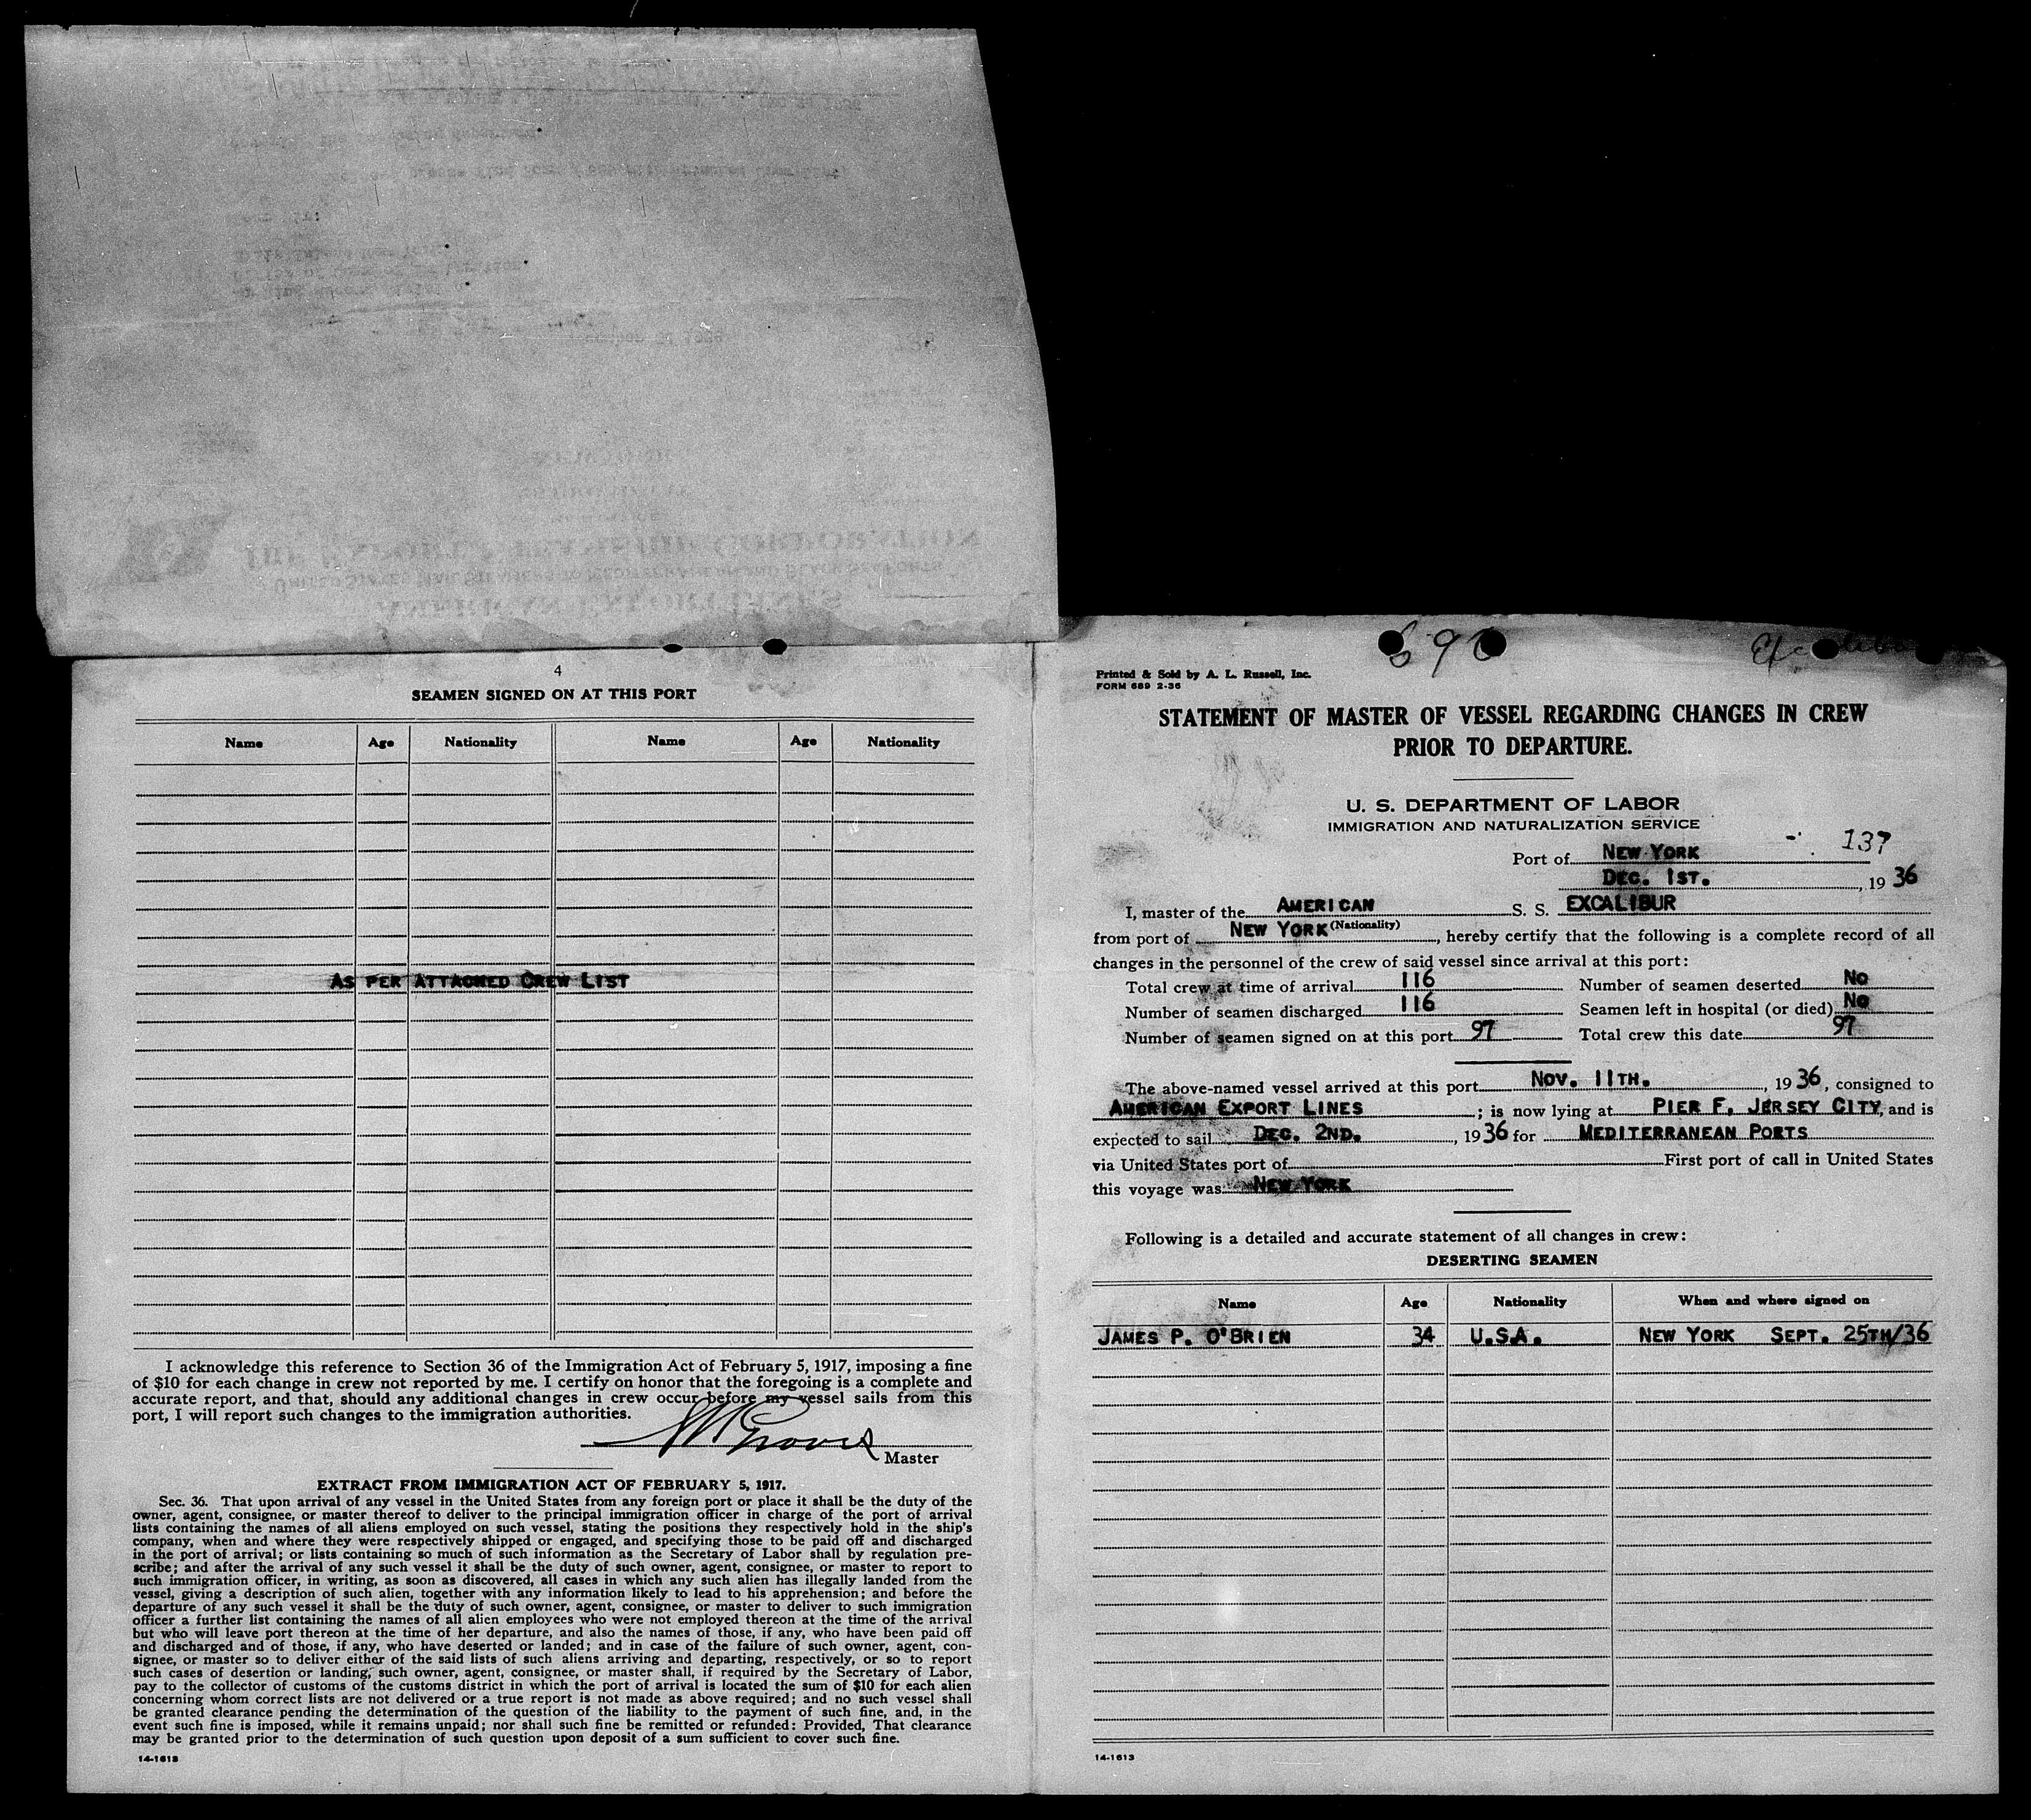 4
SEAMEN SIGNED ON AT THIS PORT
Name Age Nationality Name Age Nationality
AS PER ATTACHED CREW LIST
I acknowledge this reference to Section 36 of the Immigration Act of February 5, 1917, imposing a fine
of $10 for each change in crew not reported by me. I certify on honor that the foregoing is a complete and
accurate report, and that, should any additional changes in crew occur before my vessel sails from this
port, I will report such changes to the immigration authorities.
Master
EXTRACT FROM IMMIGRATION ACT OF FEBRUARY 5, 1917.
Sec. 36. That upon arrival of any vessel in the United States from any foreign port or place it shall be the duty of the
owner, agent, consignee, or master thereof to deliver to the principal immigration officer in charge of the port of arrival
lists containing the names of all aliens employed on such vessel, stating the positions they respectively hold in the ship's
company, when and where they were respectively shipped or engaged, and specifying those to be paid off and discharged
in the port of arrival; or lists containing so much of such information as the Secretary of Labor shall by regulation pre-
scribe; and after the arrival of any such vessel it shall be the duty of such owner, agent, consignee, or master to report to
such immigration officer, in writing, as soon as discovered, all cases in which any such alien has illegally landed from the
vessel, giving a description of such alien, together with any information likely to lead to his apprehension; and before the
departure of any such vessel it shall be the duty of such owner, agent, consignee, or master to deliver to such immigration
officer a further list containing the names of all alien employees who were not employed thereon at the time of the arrival
but who will leave port thereon at the time of her departure, and also the names of those, if any, who have been paid off
and discharged and of those, if any, who have deserted or landed; and in case of the failure of such owner, agent, con-
signee, or master so to deliver either of the said lists of such aliens arriving and departing, respectively, or so to report
such cases of desertion or landing, such owner, agent, consignee, or master shall, if required by the Secretary of Labor,
pay to the collector of customs of the customs district in which the port of arrival is located the sum of $10 for each alien
concerning whom correct lists are not delivered or a true report is not made as above required; and no such vessel shall
be granted clearance pending the determination of the question of the liability to the payment of such fine, and, in the
event such fine is imposed, while it remains unpaid; nor shall such fine be remitted or refunded: Provided, That clearance
may be granted prior to the determination of such question upon deposit of a sum sufficient to cover such fine.
14-1613
Printed & Sold by A. L. Russell, Inc.
FORM 689 2-36
STATEMENT OF MASTER OF VESSEL REGARDING CHANGES IN CREW
PRIOR TO DEPARTURE.
U. S. DEPARTMENT OF LABOR
IMMIGRATION AND NATURALIZATION SERVICE
137
Port of NEW YORK
DEC. 1ST. , 19 36
I, master of the AMERICAN S. S. EXCALIBUR
(Nationality)
from port of NEW YORK, hereby certify that the following is a complete record of all
changes in the personnel of the crew of said vessel since arrival at this port:
Total crew at time of arrival 116 Number of seamen deserted No
Number of seamen discharged 116 Seamen left in hospital (or died) No
Number of seamen signed on at this port 97 Total crew this date 97
The above-named vessel arrived at this port NOV. 11TH. , 19 36, consigned to
AMERICAN EXPORT LINES ; is now lying at PIER F. JERSEY CITY, and is
expected to sail DEC. 2ND. , 19 36 for MEDITERRANEAN PORTS
via United States port of First port of call in United States
this voyage was NEW YORK
Following is a detailed and accurate statement of all changes in crew:
DESERTING SEAMEN
Name Age Nationality When and where signed on
JAMES P. O'BRIEN 34 U.S.A. NEW YORK SEPT. 25TH/36
14-1613